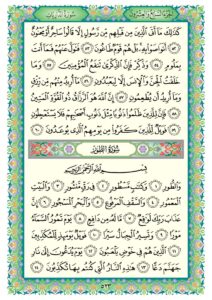 الجزء السابع والعشرون سورة الذاريات
كَذَٰلِكَ مَا أَتَى الَّذِينَ مِن قَبْلِهِم مِّن رَّسُولٍ إِلَّا قَالُوا سَاحِرٌ أَوْ مَجْنُونٌ
٥٢ أَتَوَاصَوْا بِهِ بَلْ هُمْ قَوْمٌ طَاغُونَ ٥٣ فَتَوَلَّ عَنْهُمْ فَمَا أَنتَ
بِمَلُومٍ ٥٤ وَذَكِّرْ فَإِنَّ الذِّكْرَىٰ تَنفَعُ الْمُؤْمِنِينَ ٥٥ وَمَا
خَلَقْتُ الْجِنَّ وَالْإِنسَ إِلَّا لِيَعْبُدُونِ ٥٦ مَا أُرِيدُ مِنْهُم مِّن رِّزْقٍ
وَمَا أُرِيدُ أَن يُطْعِمُونِ ٥٧ إِنَّ اللَّهَ هُوَ الرَّزَّاقُ ذُو الْقُوَّةِ الْمَتِينُ
٥٨ فَإِنَّ لِلَّذِينَ ظَلَمُوا ذَنُوبًا مِّثْلَ ذَنُوبِ أَصْحَابِهِمْ فَلَا يَسْتَعْجِلُونِ
٥٩ فَوَيْلٌ لِّلَّذِينَ كَفَرُوا مِن يَوْمِهِمُ الَّذِي يُوعَدُونَ ٦٠
سُورَةُ الطُّورِ
بِسْمِ اللَّهِ الرَّحْمَٰنِ الرَّحِيمِ
وَالطُّورِ ١ وَكِتَابٍ مَّسْطُورٍ ٢ فِي رَقٍّ مَّنشُورٍ ٣ وَالْبَيْتِ
الْمَعْمُورِ ٤ وَالسَّقْفِ الْمَرْفُوعِ ٥ وَالْبَحْرِ الْمَسْجُورِ ٦ إِنَّ
عَذَابَ رَبِّكَ لَوَاقِعٌ ٧ مَّا لَهُ مِن دَافِعٍ ٨ يَوْمَ تَمُورُ السَّمَاءُ
مَوْرًا ٩ وَتَسِيرُ الْجِبَالُ سَيْرًا ١٠ فَوَيْلٌ يَوْمَئِذٍ لِّلْمُكَذِّبِينَ
١١ الَّذِينَ هُمْ فِي خَوْضٍ يَلْعَبُونَ ١٢ يَوْمَ يُدَعُّونَ إِلَىٰ نَارِ
جَهَنَّمَ دَعًّا ١٣ هَٰذِهِ النَّارُ الَّتِي كُنتُم بِهَا تُكَذِّبُونَ ١٤
٥٢٣